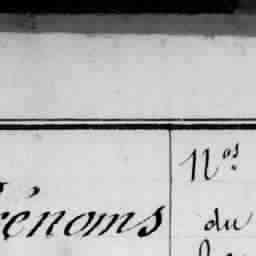 Prénoms
Nos
du